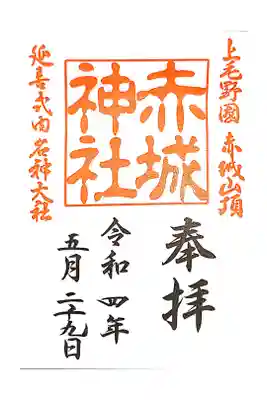 上毛野國 赤城山頂
奉拝
赤城
神社
令和四年
五月二十九日
延喜式内名神大社